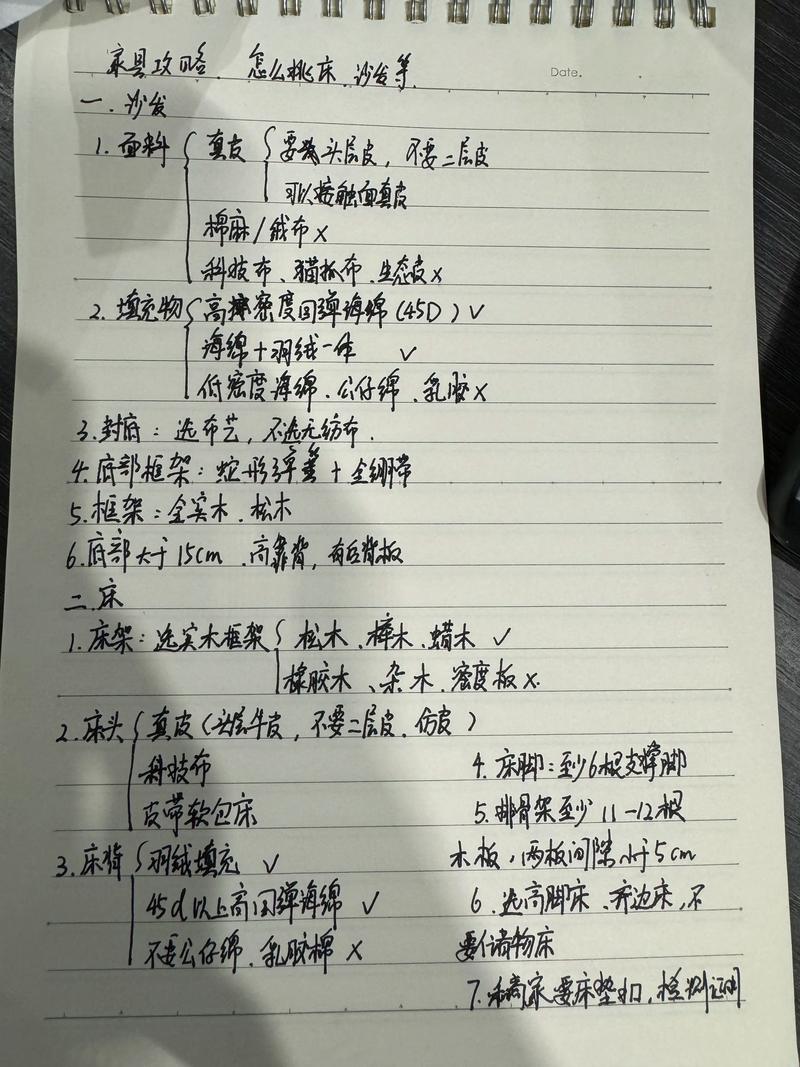 家具攻略. 怎么挑床、沙发等.
Date.
一. 沙发
1. 面料 真皮 要头层皮, 不要二层皮
可以接触面真皮
棉麻/绒布 ×
科技布、猫抓布、生态皮 ×
2. 填充物 高密度回弹海绵 (45D) √
海绵+羽绒一体 √
低密度海绵、公仔绵、乳胶 ×
3. 封底: 选布艺, 不选无纺布.
4. 底部框架: 蛇形弹簧 + 全绷带
5. 框架: 全实木、松木
6. 底部大于 15cm、高靠背, 有后背板
二. 床
1. 床架: 选实木框架 松木、樟木、蜡木 √
橡胶木、杂木、密度板 ×.
2. 床头 真皮 (头层牛皮, 不要二层皮、仿皮)
科技布
皮带软包床
3. 床背 羽绒填充 √
45d以上高回弹海绵 √
不要公仔绵、乳胶棉 ×
4. 床脚: 至少6根支撑脚
5. 排骨架至少 11-12根
木板, 两板间隙小于5cm
6. 选高脚床、齐边床, 不
要储物床
7. 和商家要床垫扣, 检测证明